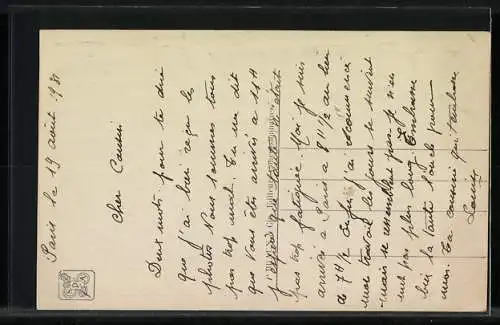 Paris le 19 août 1931
Cher Cousin
Deux mots pour te dire
que j'ai bien reçu les
photos Nous sommes tous
pas trop mal. Tu me dit
que vous êtes arrivés à 11 H
pas trop fatiguée. Moi je suis
arrivée à Paris à 8 H 1/2 au lieu
de 7 H 1/2 Enfin j'ai recommencé
mon travail les jours se suivent
mais se ressemblent pas je n'en
met pas plus long. Embrasse
bien la tante Louch pour
moi. Ta cousine qui t'embrasse